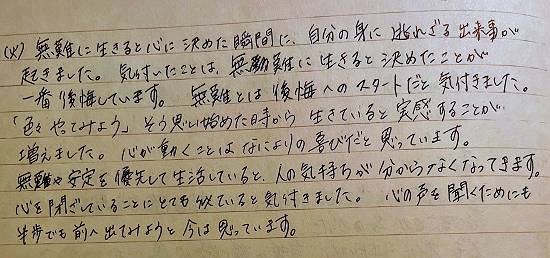 (火) 無難に生きると心に決めた瞬間に、自分の身に逃れざる出来事が
起きました。 気付いたことは、無難に生きると決めたことが
一番後悔しています。 無難とは後悔へのスタートだと気付きました。
「色々やってみよう」そう思い始めた時から 生きていると実感することが
増えました。 心が動くことはなによりの喜びだと思っています。
無難や安定を優先して生活していると、人の気持ちが分からなくなってきます。
心を閉ざしていることにとても似ていると気付きました。 心の声を聞くためにも
半歩でも前へ出てみようと今は思っています。